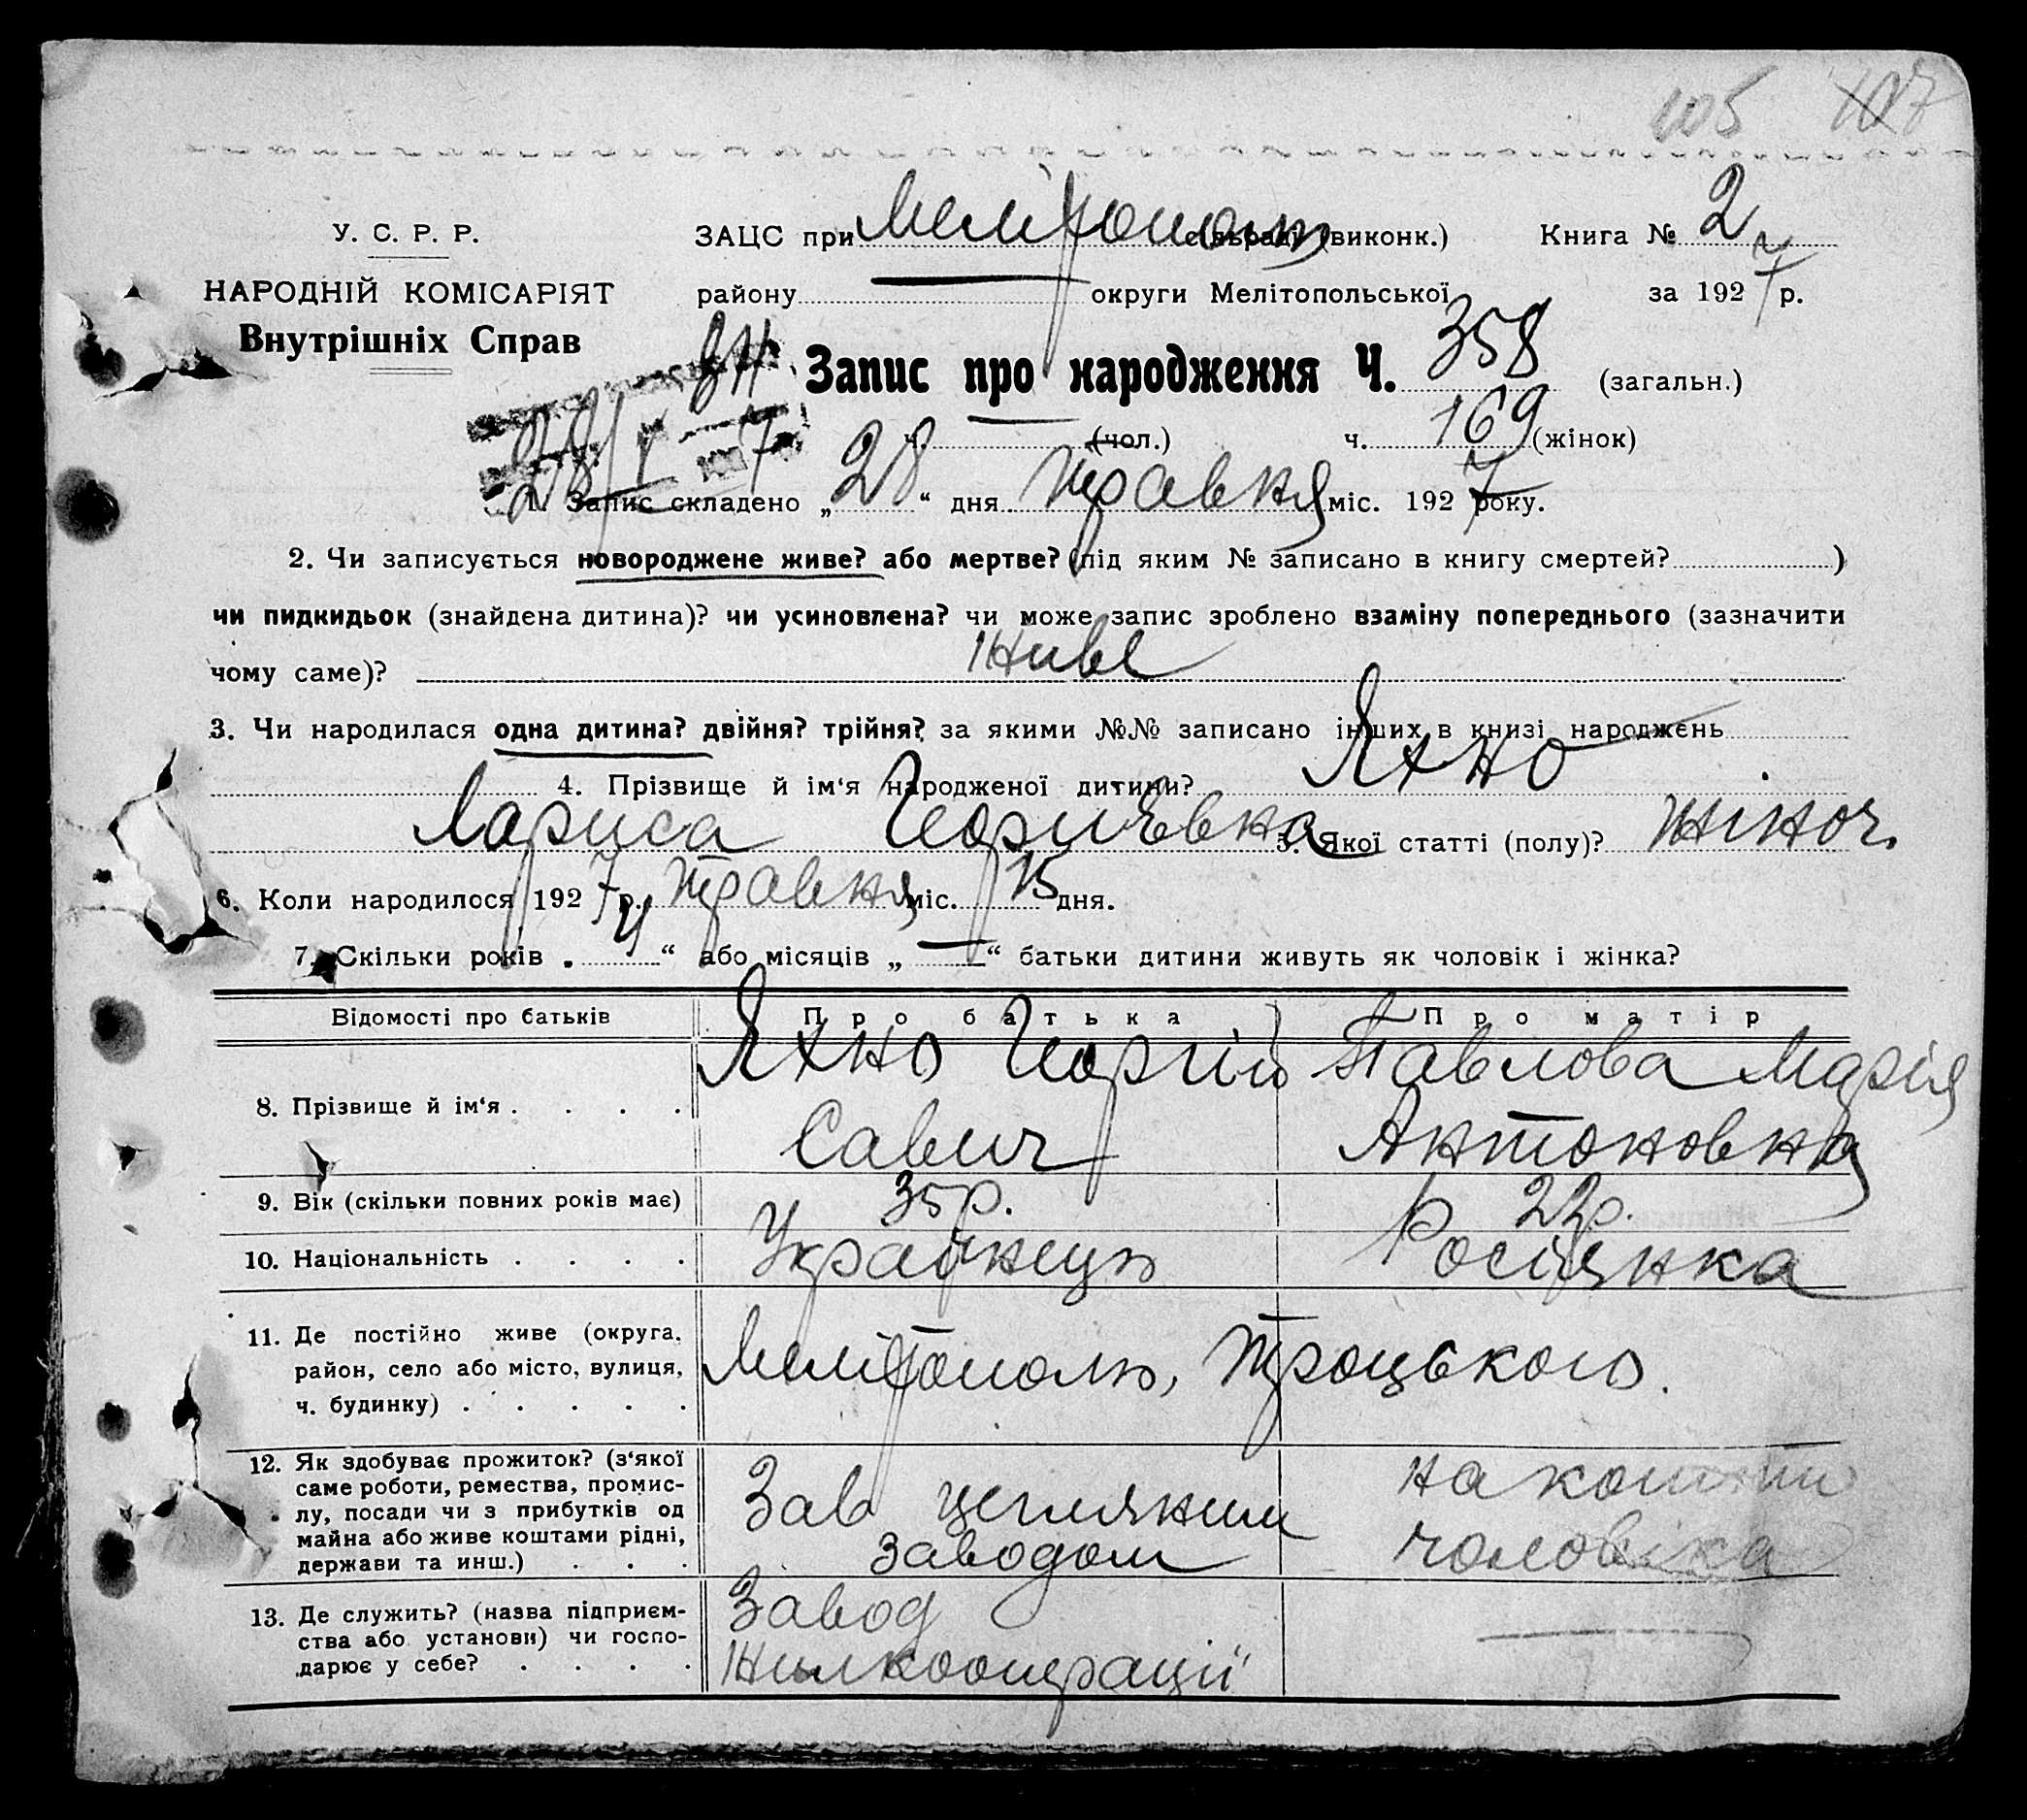 105 107
У. С. Р. Р. ЗАЦС при Мелітополь сільраді (виконк.) Книга № 2
НАРОДНІЙ КОМІСАРІЯТ району — округи Мелітопольської за 1927 р.
Внутрішніх Справ
Запис про народження Ч. 358 (загальн.)
ч. — (чол.) ч. 169 (жінок)
28/V 7
1. Запис складено „28“ дня травня міс. 1927 року.
2. Чи записується новороджене живе? або мертве? (під яким № записано в книгу смертей? )
чи пидкидьок (знайдена дитина)? чи усиновлена? чи може запис зроблено взаміну попереднього (зазначити
чому саме)? Живе
3. Чи народилася одна дитина? двійня? трійня? за якими №№ записано інших в книзі народжень —
4. Прізвище й ім‘я народженої дитини? Яхно
Лариса Георгіевна 5. Якої статті (полу)? жіноч.
6. Коли народилося 1927 р. травня міс. 15 дня.
7. Скільки років „ 4 “ або місяців „ — “ батьки дитини живуть як чоловік і жінка?
Відомості про батьків Про батька Про матір
8. Прізвище й ім‘я . . . . Яхно Георгій Павлова Марія
Савич Антоновна
9. Вік (скільки повних років має) 35 р. 22 р.
10. Національність . . . . Українець Росіянка
11. Де постійно живе (округа, район, село або місто, вулиця, ч. будинку) . . . . . Мелітополь, Троцького.
12. Як здобуває прожиток? (з‘якої
саме роботи, ремества, промис-
лу, посади чи з прибутків од
майна або живе коштами рідні,
держави та инш.) . . .
Зав цегляним на кошти
заводом чоловіка
13. Де служить? (назва підприєм-
ства або установи) чи госпо-
дарює у себе? . . . .
Завод —
Жилкооперації